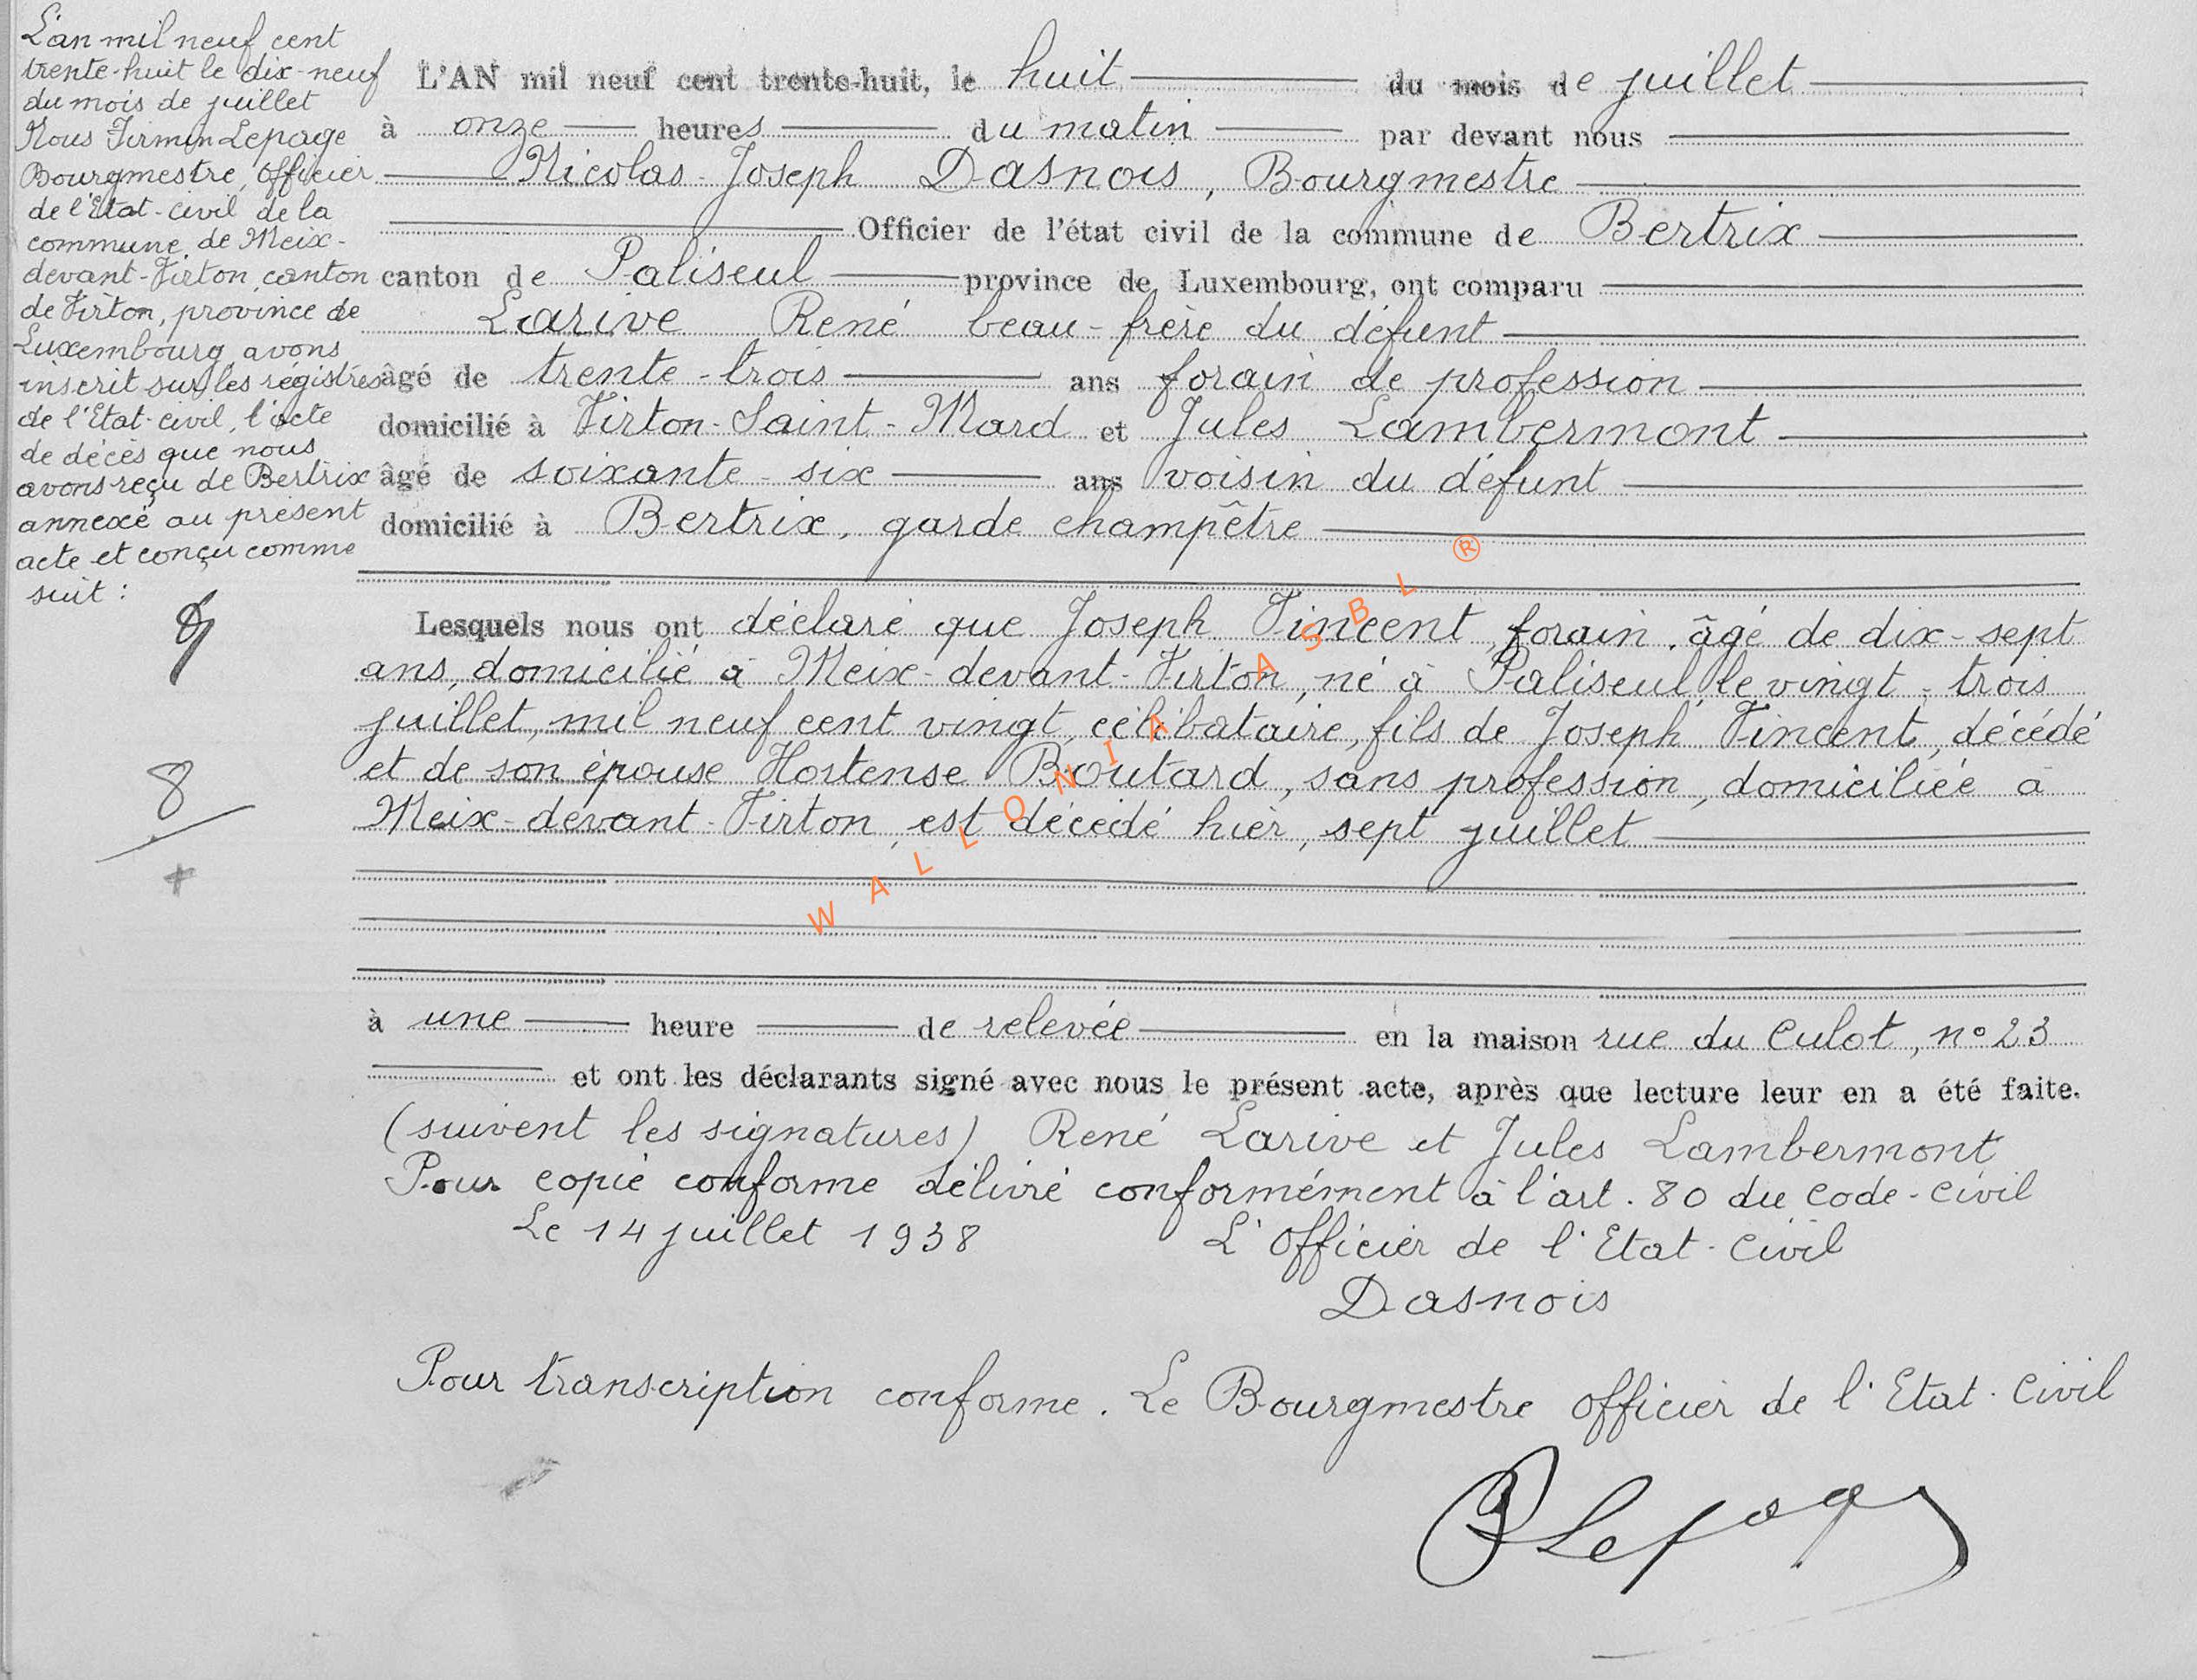 L'an mil neuf cent
trente-huit le dix-neuf
du mois de juillet
Nous Firmin Lepage
Bourgmestre, officier
de l'Etat-civil de la
commune de Meix-
devant-Virton, canton
de Virton, province de
Luxembourg avons
inscrit sur les régistres
de l'Etat-civil, l'acte
de décès que nous
avons reçu de Bertrix
annexé au présent
acte et conçu comme
suit :
8
L'AN mil neuf cent trente-huit, le huit du mois de juillet
à onze heures du matin par devant nous
Nicolas-Joseph Dasnois, Bourgmestre
Officier de l'état civil de la commune de Bertrix
canton de Paliseul province de Luxembourg, ont comparu
Larive René beau-frère du défunt
âgé de trente-trois ans forain de profession
domicilié à Virton-Saint-Mard et Jules Lambermont
âgé de soixante-six ans voisin du défunt
domicilié à Bertrix, garde champêtre
Lesquels nous ont déclaré que Joseph Vincent, forain, âgé de dix-sept
ans, domicilié à Meix-devant-Virton, né à Paliseul le vingt-trois
juillet, mil neuf cent vingt, célibataire, fils de Joseph Vincent, décédé
et de son épouse Hortense Boutard, sans profession, domiciliée à
Meix-devant-Virton, est décédé hier, sept juillet
à une heure de relevée en la maison rue du Culot, n° 23
et ont les déclarants signé avec nous le présent acte, après que lecture leur en a été faite.
(suivent les signatures) René Larive et Jules Lambermont
Pour copie conforme délivré conformément à l'art. 80 du Code-Civil
Le 14 juillet 1938 L'Officier de l'Etat-Civil
Dasnois
Pour transcription conforme. Le Bourgmestre officier de l'Etat-Civil
Lepage
WALLONIA ASBL ®